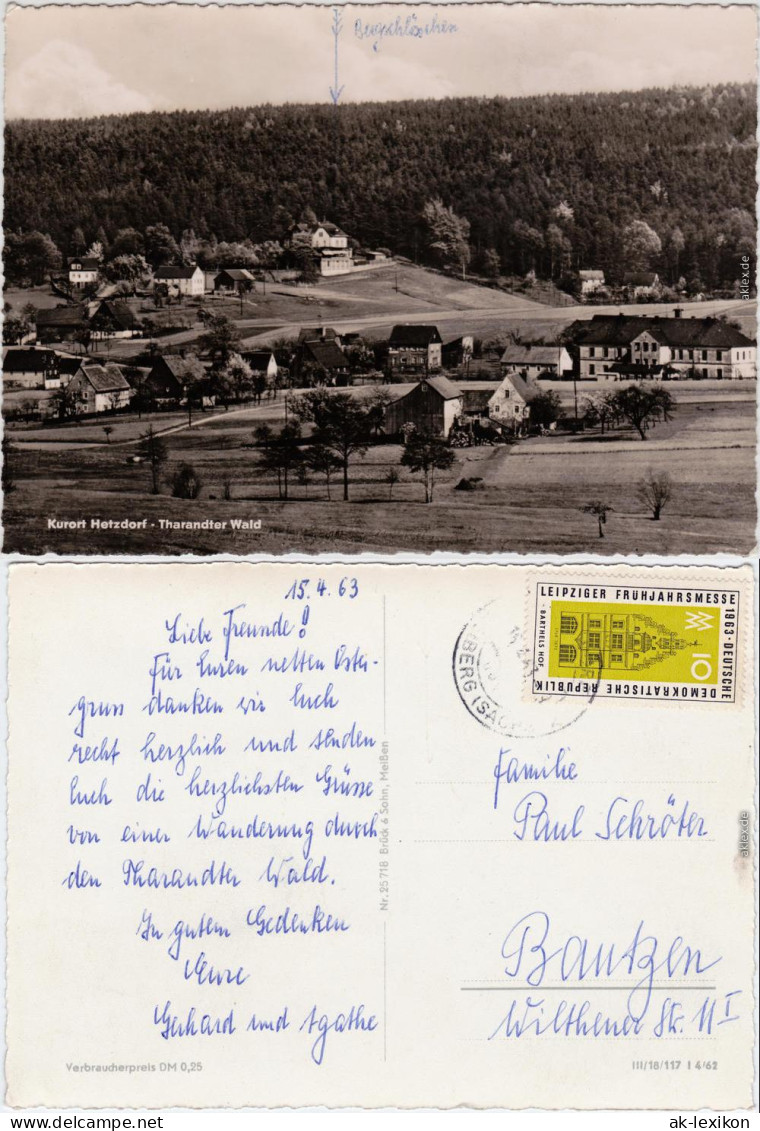 Bergschlösschen
Kurort Hetzdorf - Tharandter Wald
aklexikon.de
15.4.63
Liebe Freunde!
Für Euren netten Oster-
gruss danken wir Euch
recht herzlich und senden
Euch die herzlichsten Grüsse
von einer Wanderung durch
den Tharandter Wald.
In gutem Gedenken
Eure
Gerhard und Agathe
Verbraucherpreis DM 0,25
Nr. 25718 Brück & Sohn, Meißen
LEIPZIGER FRÜHJAHRSMESSE 1963 · DEUTSCHE
DEMOKRATISCHE REPUBLIK
· BARTHELS HOF
10
BERG (SACHS
Familie
Paul Schröter
Bautzen
Wilthener Str. 11 II
III/18/117 I 4/62
aklex.de
ak-lexikon